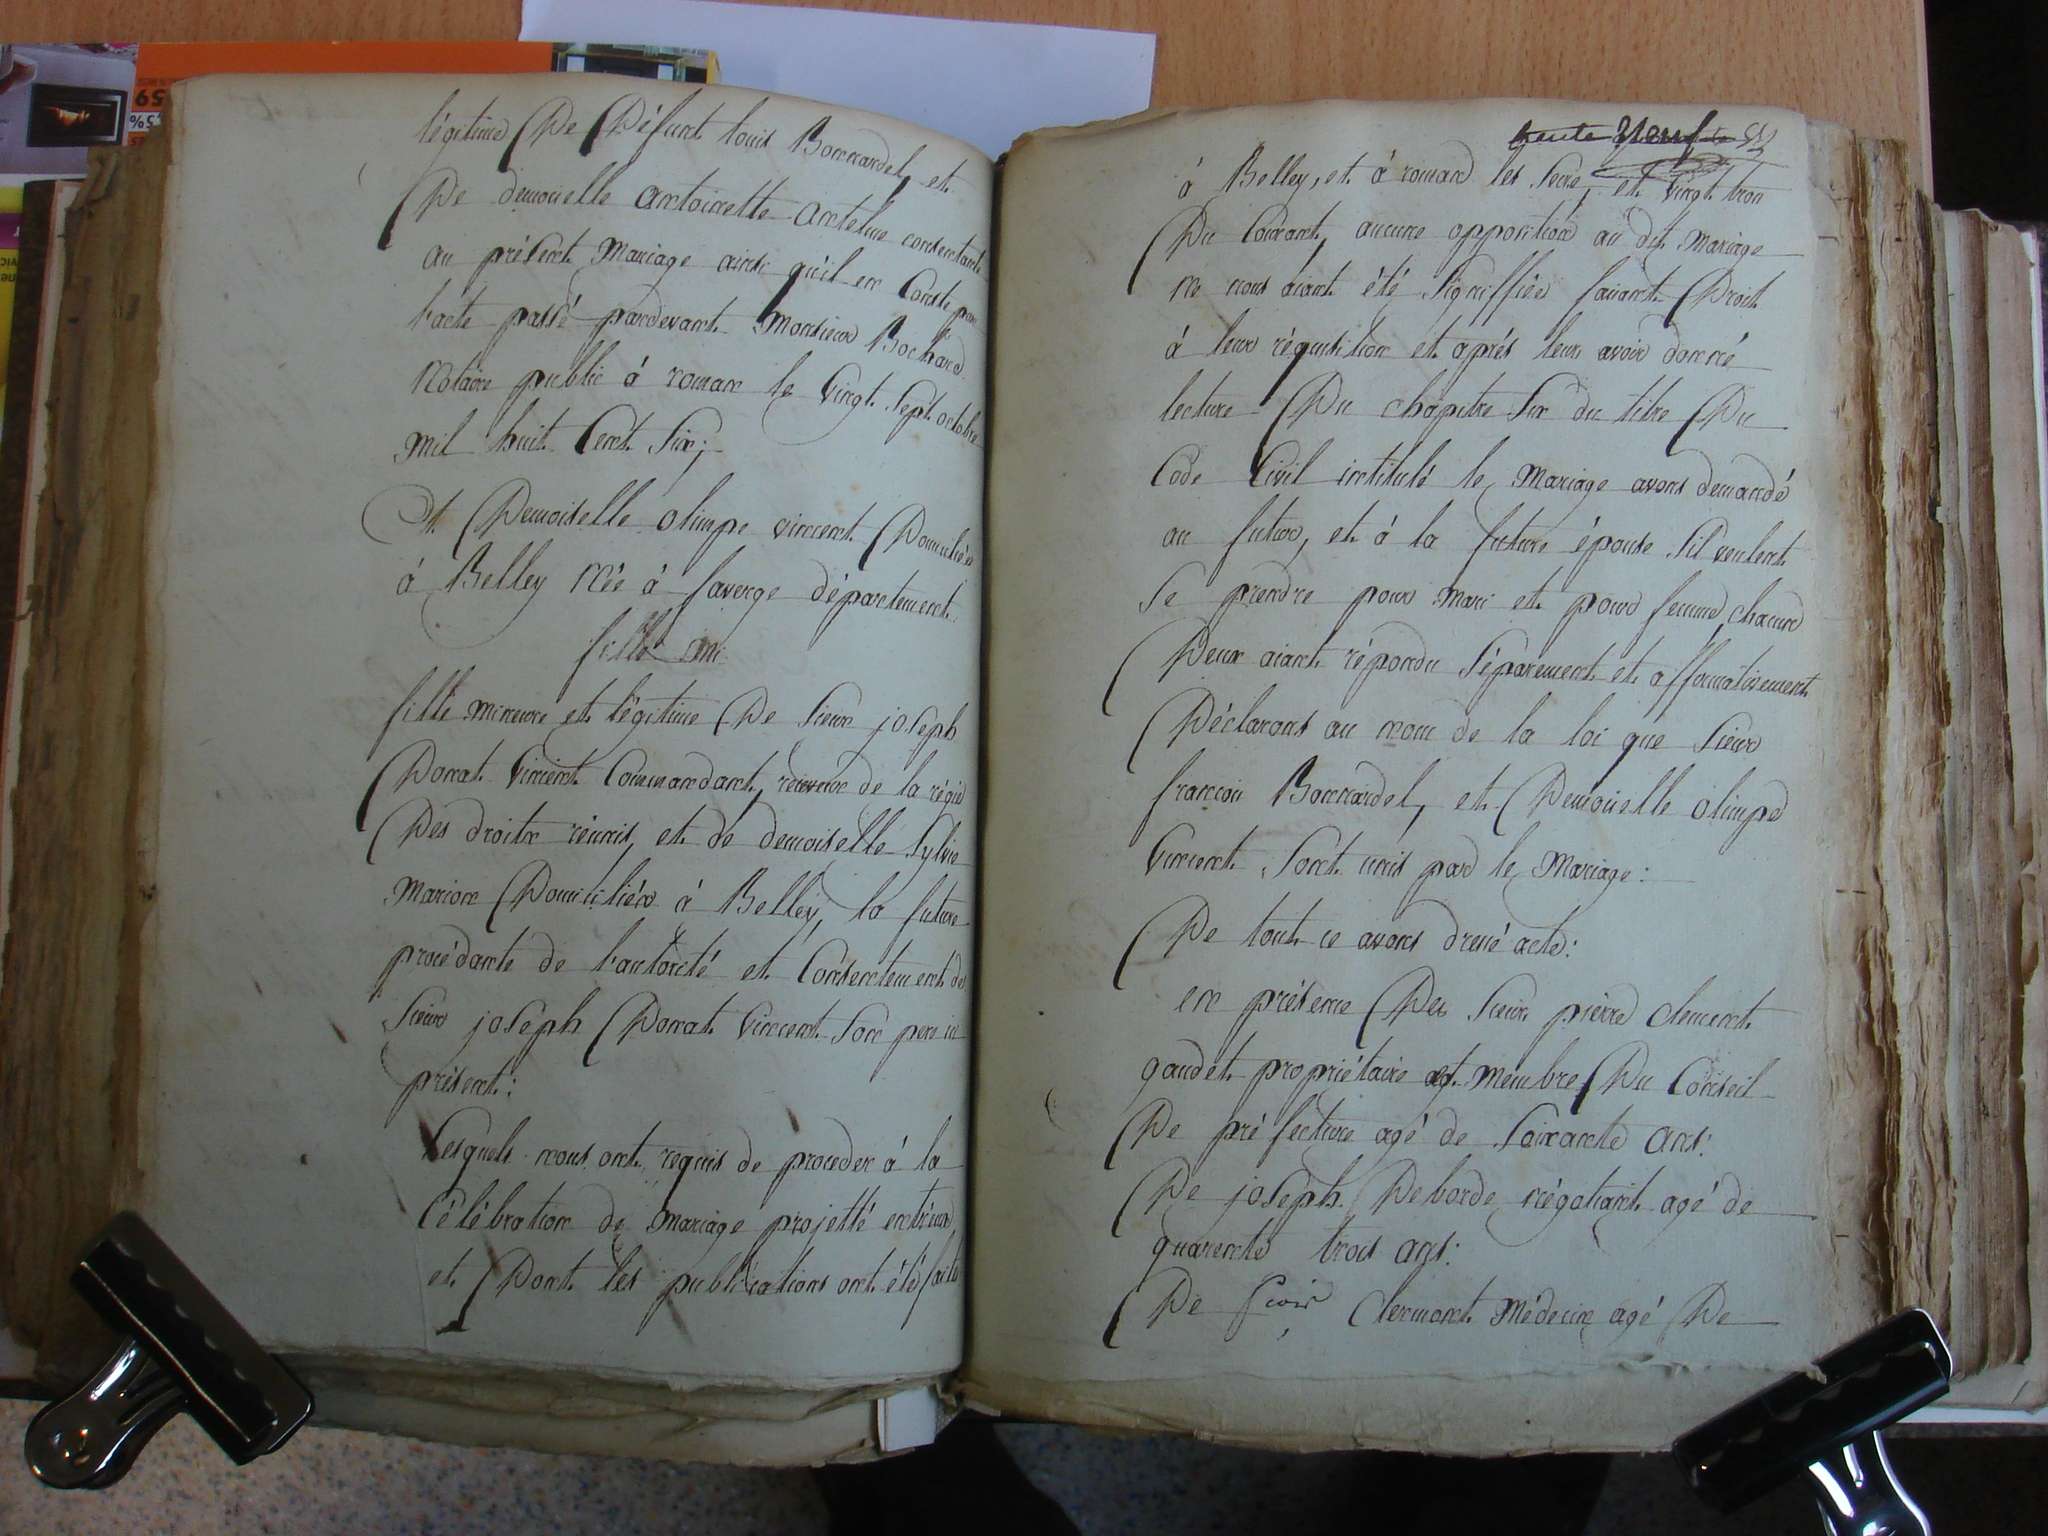 légitime De Défunt louis Bonnardel, et
De demoiselle antoinette antelme consentante
au présent Mariage ainsi qu'il en Conste par
l'acte passé pardevant Monsieur Bochard
Notaire public à roman le vingt Sept octobre
mil huit Cent Six;
Et Demoiselle olimpe vincent Domiciliée
à Belley Née à faverge département
fille mi
fille mineure et légitime De Sieur joseph
Donat Vincent Commandant, receveur de la régie
Des droits réunis, et de demoiselle Sylvie
Marion Domiciliés à Belley, la future
procédante de l'autorité et Consentement de
Sieur joseph Donat Vincent Son pere ici
présent:
Lesquels nous ont requis de proceder à la
Célébration de mariage projetté entreux
et Dont les publications ont été faite
trente Neuf
à Belley, et à roman les Seize, et vingt trois
Du Courant, aucune opposition au dit mariage
ne nous aiant été Signiffiée faisant Droit
à leur réquisition et après leur avoir donné
lecture Du chapitre Six du titre Du
Code Civil intitulé le Mariage avons demandé
au futur, et à la future épouse S'il veulent
Se prendre pour mari et pour femme, chacun
Deux aiant répondu Séparement et affirmativement
Déclarons au nom de la loi que Sieur
françois Bonnardel, et Demoiselle olimpe
Vincent Sont unis par le Mariage:
De tout ce avons dressé acte:
en présence Des Sieurs pierre clement
gaudet propriétaire et membre Du Conseil
De préfecture agé de Soixante ans:
De joseph Deborde négotiant agé de
quarente trois ans:
De clermont Médecin agé De